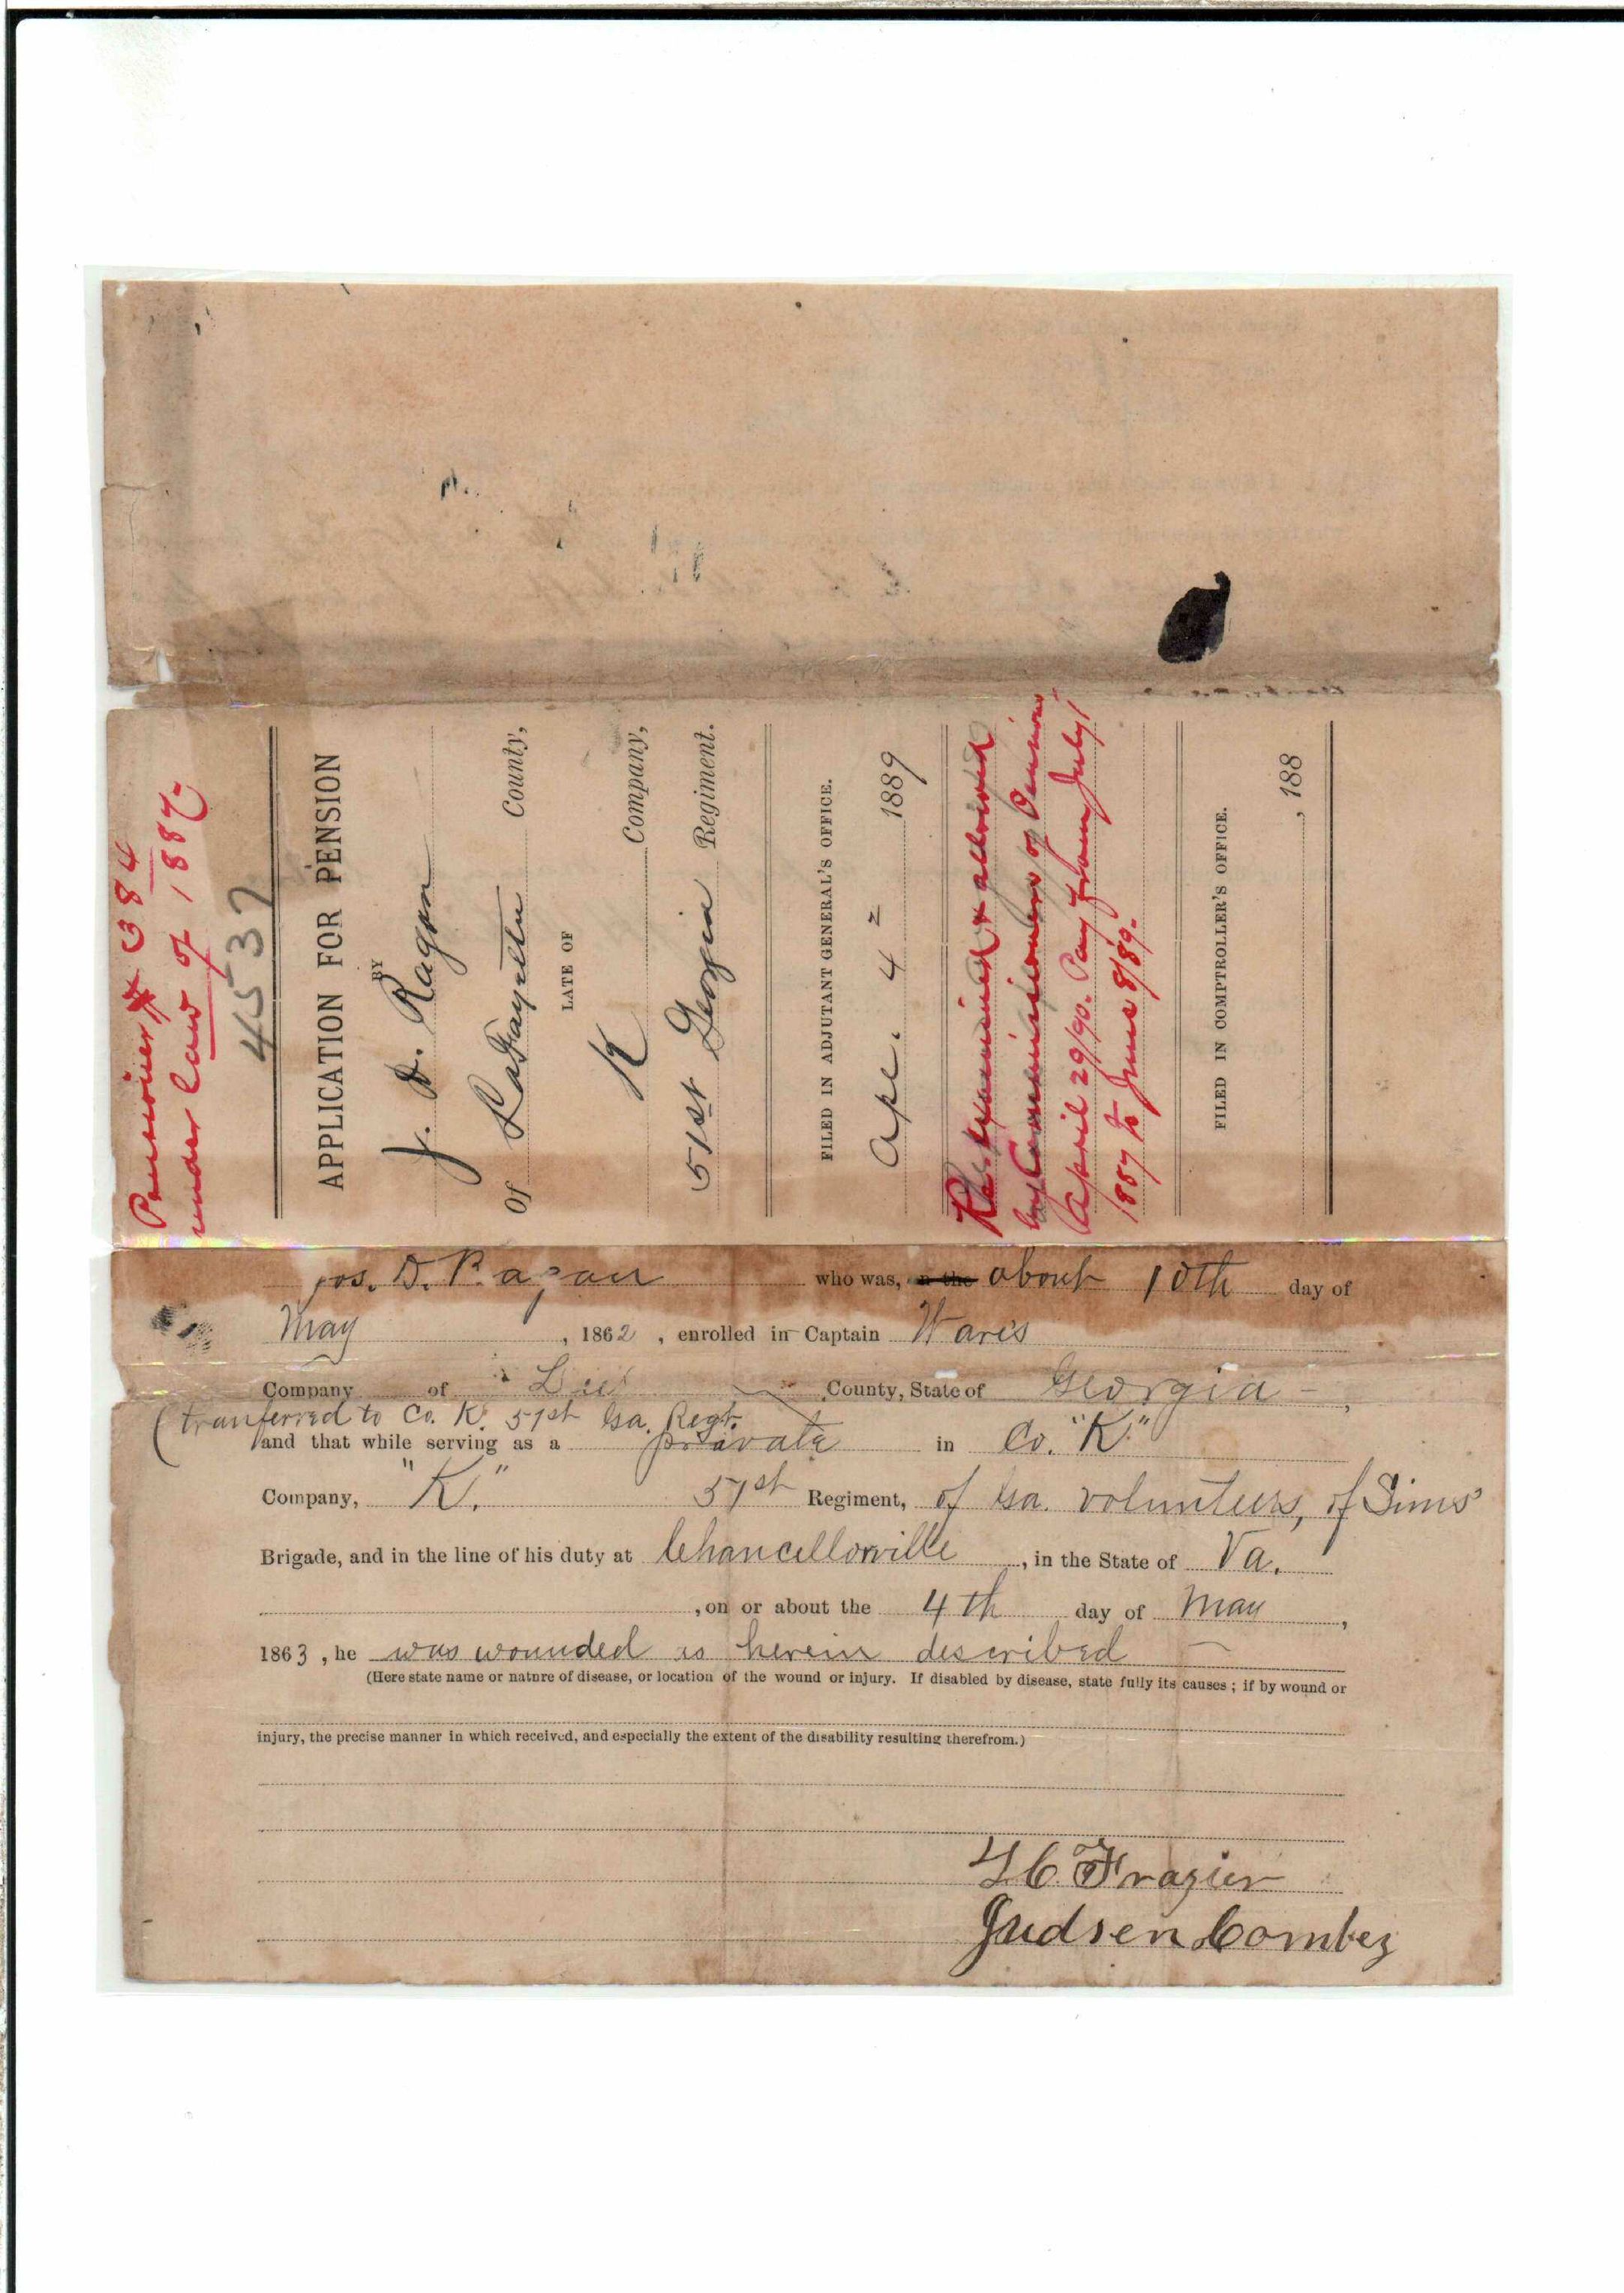 Pensioner # 384
under law of 1887.
4537
APPLICATION FOR PENSION
BY
J. D. Ragan
Of LaFayette County,
LATE OF
K Company,
51st Georgia Regiment.
FILED IN ADJUTANT GENERAL'S OFFICE.
Apl. 4 = 1889
Re-examined & allowed
by Commissioners of Pensions
April 29/90. Pay from July 1
1887 to June 8/89.
FILED IN COMPTROLLER'S OFFICE.
, 188
Jos. D. Ragan who was, n the about 10th day of
May , 1862 , enrolled in Captain Ware's
Company of Lee County, State of Georgia
(tranferred to Co. K. 51st Ga. Regt.
and that while serving as a private in Co. "K"
Company, "K." 51st Regiment, of Ga. volunteers, of Sims'
Brigade, and in the line of his duty at Chancellorville , in the State of Va.
, on or about the 4th day of May ,
1863 , he was wounded as herein described
(Here state name or nature of disease, or location of the wound or injury. If disabled by disease, state fully its causes ; if by wound or
injury, the precise manner in which received, and especially the extent of the disability resulting therefrom.)
Frazier
Judsen Combez